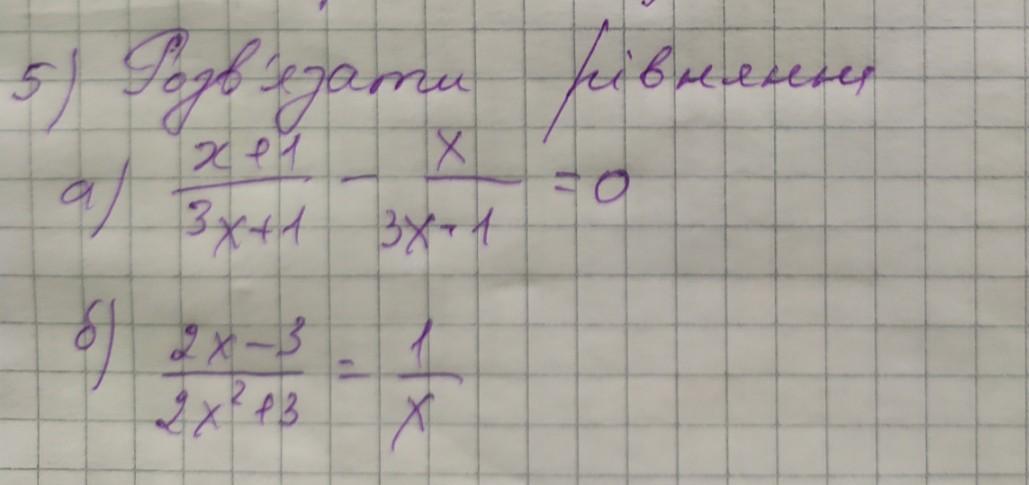 5) Розв'язати рівняння
а) (x+1)/(3x+1) - x/(3x-1) = 0
б) (2x-3)/(2x²+3) = 1/x